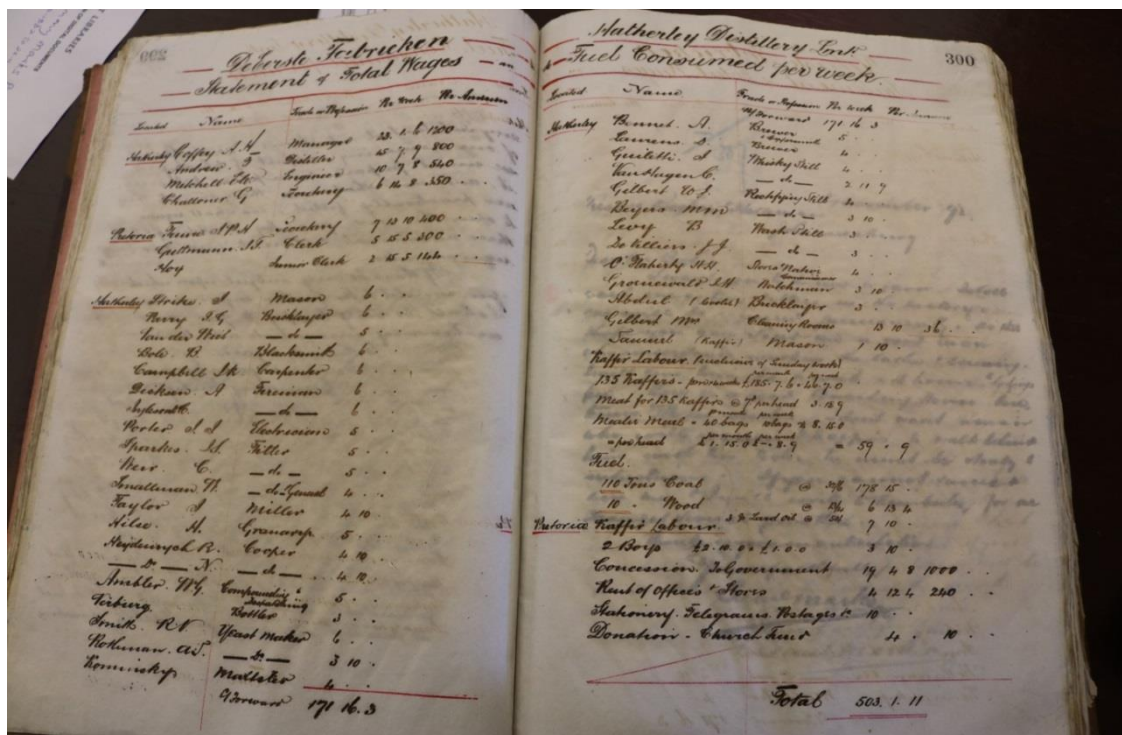 299
De Eerste Fabrieken
Statement of Total Wages — an
Located Name Trade or Profession Per Week Per Annum
Hatherley Coffey A.H. Manager 23. 1. 6 1200
Andrew. J Distiller 15 7 9 800
Mitchell Engineer 10 7 8 540
Challoner G Coaching 6 14 8 350
Pretoria Coaching 7 13 10 400
Guttmann Clerk 5 15 5 300
Hoy Junior Clerk 2 15 5 144
Hatherley J. Mason 6 . .
Parry J.G Bricklayer 6 . .
Van der West — do — 5 . .
Bole. B Blacksmith 6 . .
Campbell Jk Carpenter 6 . .
Dickson. A Fireman 6 . .
— do — 6 . .
Porter J J Electrician 5 . .
Sparkes. Fitter 5 . .
Weir. C. — do — 5 . .
Smallman W. — do General 4 . .
Taylor J Miller 4 10 .
Hilse. H. Granary 5 . .
Heydenrych R. Cooper 4 10 .
— Do — N. — do — 4 10 .
Ambler. W.G. Compounding & Despatching 5 . .
Bottler 3 . .
Smith. R.V. Yeast Maker 6 . .
Rothman. — Do — 3 10 .
Kominsky Maltster 4 . .
C/Forward 171 16. 3
300
Hatherley Distillery
Fuel Consumed per week.
Located Name Trade or Profession Per week Per Annum
B/Forward 171 16 3
Hatherley Bennet. A. Brewer 5 .
Laurens. Brewer 4 . .
Guiletti. J Whisky Still 4 . .
Van Hagen C. — do — 2 11 9
Gilbert W.J. Rectifying Still 4
Beyers. M.M — do — 3 10 .
Levy B Wash Still 3 . .
De Villiers. J.J. — do — 3 . .
O'Flaherty 4 . .
Groenewald Watchman 3 10
Abdul Bricklayer 3 . .
Gilbert Mrs Cleaning Rooms 13 10 36 . .
Samuel (Kaffir) Mason 1 10 .
Kaffir Labour. (inclusive of Sunday work)
135 Kaffirs - per month £185. 7. 6 = 46. 7. 0
Meat for 135 Kaffirs @ 7d per head 3. 18 9
per month per week
Mealie Meal - 40 bags 10 bags 8. 15. 0
per month per week
= per head £1. 15. 0 £ - 8. 9 = 59 . 9
Fuel.
110 Tons Coal @ 32/6 178 15 .
10 . Wood @ 13/4 6 13 4
7 10 .
Pretoria Kaffir Labour.
2 Boys £2. 10. 0 + £1. 0. 0 3 10 .
Concession. To Government 19 4 8 1000 . .
Rent of Offices & Stores 4 12 4 240 . .
Stationery. Telegrams Postages &c 10 . .
Donation - Church Fund 4 . 10 . .
Total 503. 1. 11